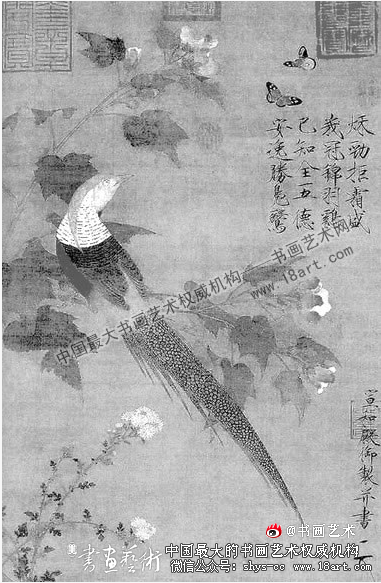 秌勁拒霜盛
峩冠錦羽雞
已知全五德
安逸勝鳧鷖
宣和殿御製并書
中国最大书画艺术权威机构 - 书画艺术网
www.18art.com
@书画艺术
書畫藝術
中国最大的书画艺术权威机构
微信公众号：shys-cc www.18art.com